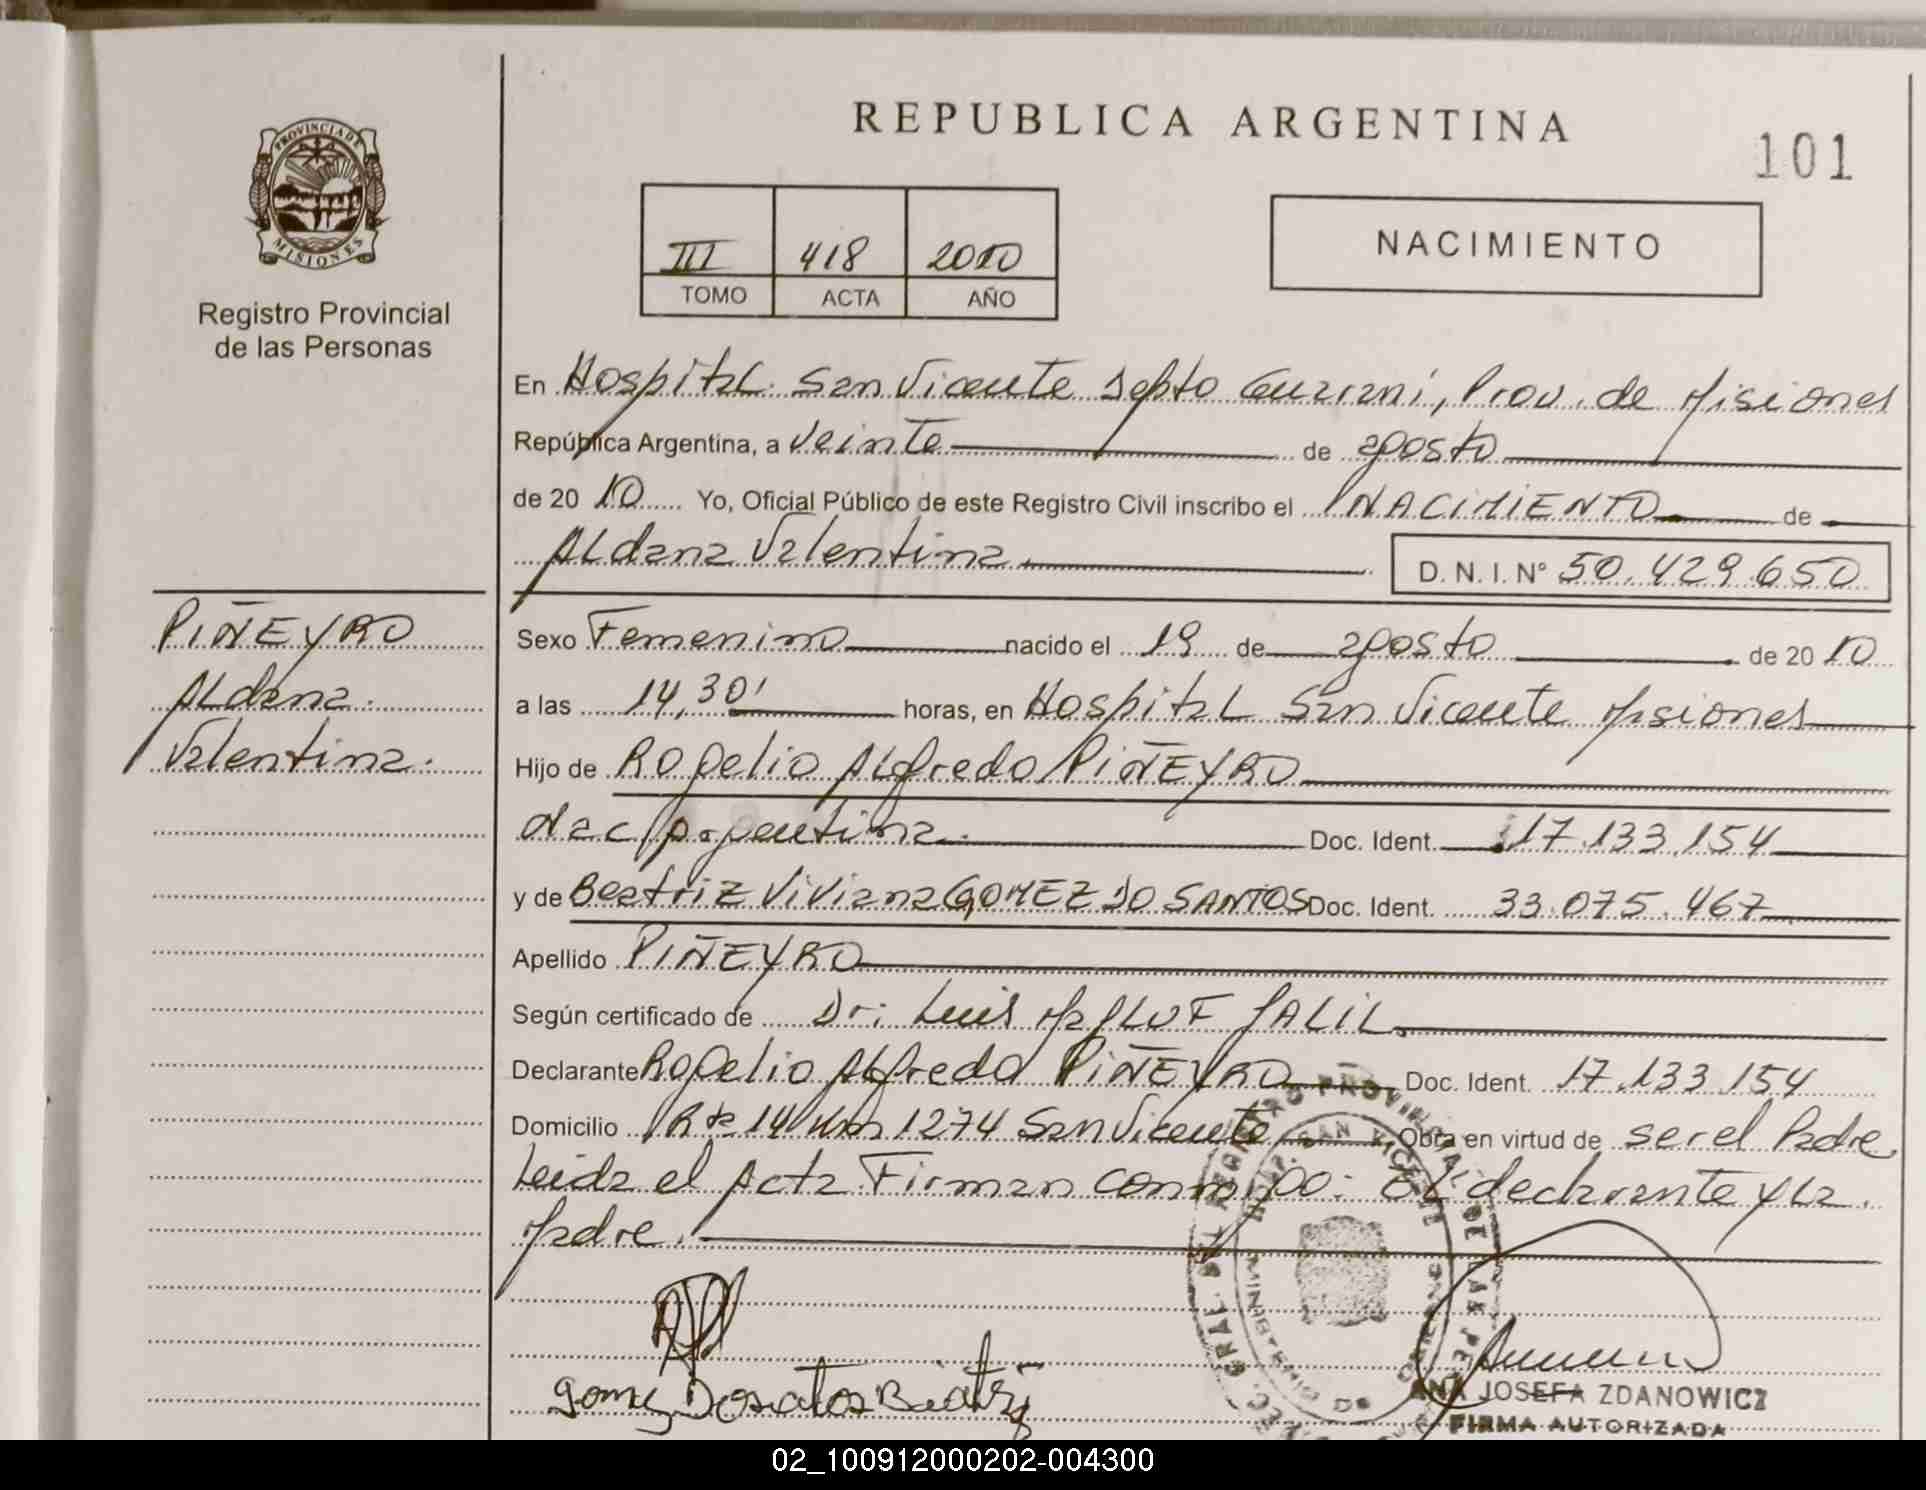 REPUBLICA ARGENTINA
101
PROVINCIA DE
MISIONES
Registro Provincial
de las Personas
III 418 2010
TOMO ACTA AÑO
NACIMIENTO
En Hospital San Vicente Depto Guarani, Prov. de Misiones
República Argentina, a veinte de agosto
de 20 10 Yo, Oficial Público de este Registro Civil inscribo el NACIMIENTO de
Aldana Valentina
D. N. I. Nº 50.429.650
PIÑEYRO
Aldana
Valentina.
Sexo Femenino nacido el 19 de agosto de 20 10
a las 14,30' horas, en Hospital San Vicente Misiones
Hijo de Rogelio Alfredo PIÑEYRO
Nac Argentina. Doc. Ident. 17.133.154
y de Beatriz Viviana GOMEZ DO SANTOS Doc. Ident. 33.075.467
Apellido PIÑEYRO
Según certificado de Dr: Luis MALUF JALIL.
Declarante Rogelio Alfredo PIÑEYRO Doc. Ident. 17.133.154
Domicilio Rta 14 Km 1274 San Vicente Obra en virtud de ser el Padre
Leida el Acta Firman conmigo: El declarante y la
Madre.
Gomez Dosantos Beatriz
ANA JOSEFA ZDANOWICZ
FIRMA AUTORIZADA
02_100912000202-004300